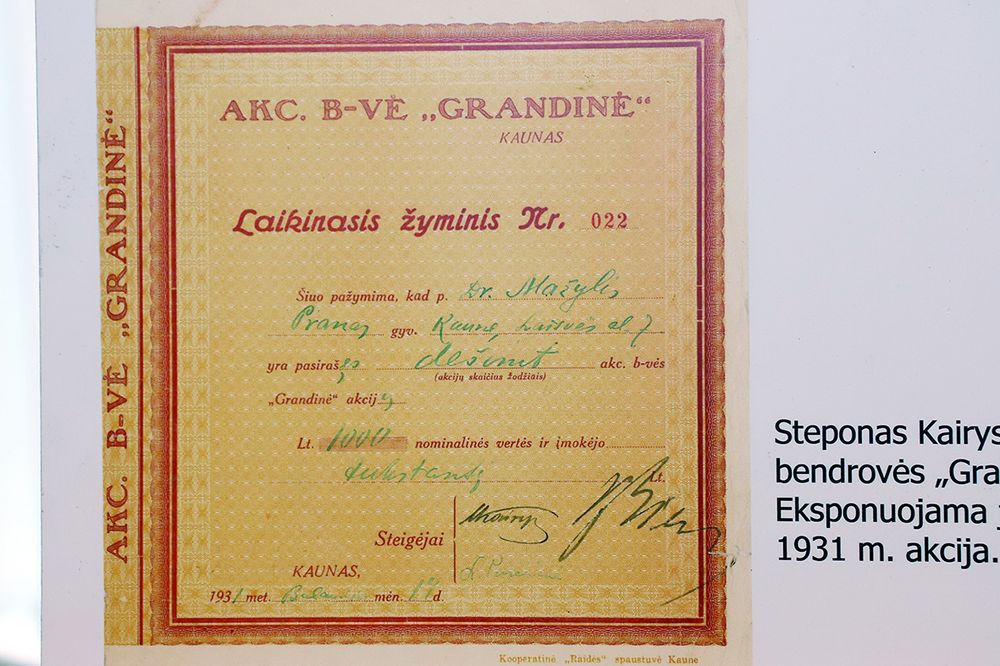 AKC. B-VĖ „GRANDINĖ“
AKC. B-VĖ „GRANDINĖ“
KAUNAS
Laikinasis žyminis Nr. 022
Šiuo pažymima, kad p. Dr. Mažylis
Pranas gyv. Kaune, Laisvės al. 7
yra pasirašęs dešimt akc. b-vės
(akcijų skaičius žodžiais)
„Grandinė“ akcijų
Lt. 1000 nominalinės vertės ir įmokėjo
tukstantį Lt.
Steigėjai
KAUNAS,
1931 met. mėn. d.
Kooperatinė „Raidės“ spaustuvė Kaune
Steponas Kairys
bendrovės „Gra
Eksponuojama j
1931 m. akcija.